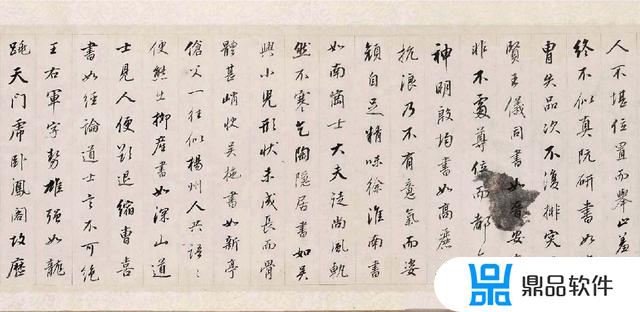 人不堪位置而舉止羞
終不似真阮研書如
胄失品次不復排突
賢王儀同書如晉安
非不處尊位而都
神明殷均書如高麗
抗浪乃不有意氣而姿
顏自足精味徐淮南書
如南崗士大夫徒尚風軌
然不寒乞陶隱居書如吳
興小兒形狀未成長而骨
體甚峭快吳施書如新亭
傖父一往似楊州人共語〻
便態出柳產書如深山道
士見人便欲退縮曹喜
書如經論道士言不可絕
王右軍字勢雄強如龍
跳天門虎臥鳳閣故歷
鼎品软件